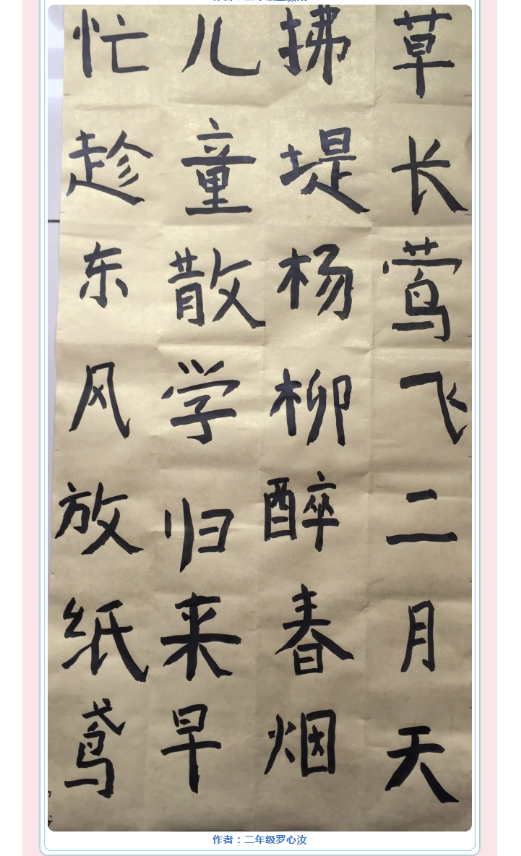 草长莺飞二月天
拂堤杨柳醉春烟
儿童散学归来早
忙趁东风放纸鸢
作者：二年级罗心汝